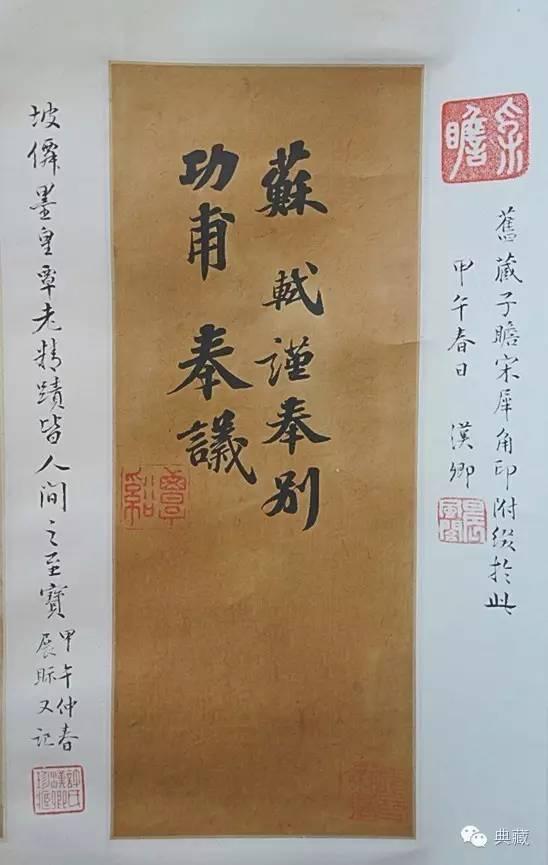 舊藏子瞻宋犀角印附綴於此
甲午春日 漢卿
蘇軾謹奉別
功甫奉議
坡僊墨皇覃老精蹟皆人間之至寶
甲午仲春
展眎又記
子瞻
許氏漢卿珍藏
典藏